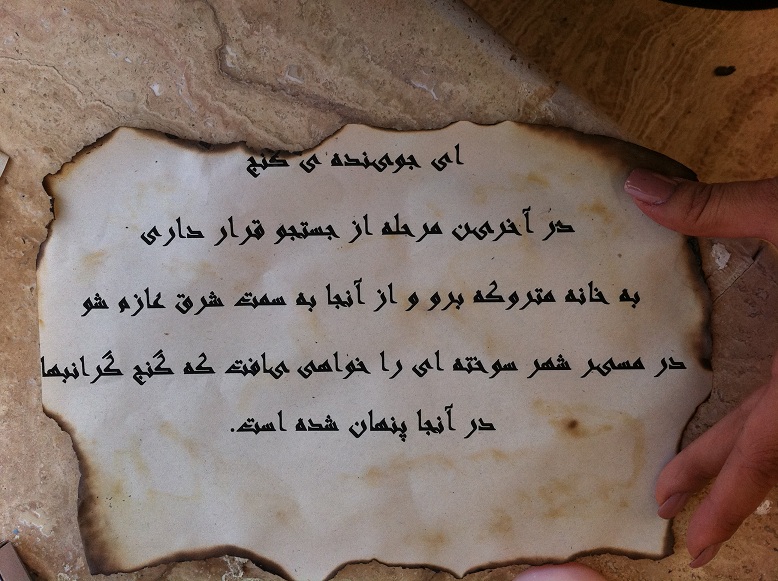 ای جوینده ی گنج
در آخرین مرحله از جستجو قرار داری
به خانه متروکه برو و از آنجا به سمت شرق عازم شو
در مسیر شهر سوخته ای را خواهی یافت که گنج گرانبها
در آنجا پنهان شده است.